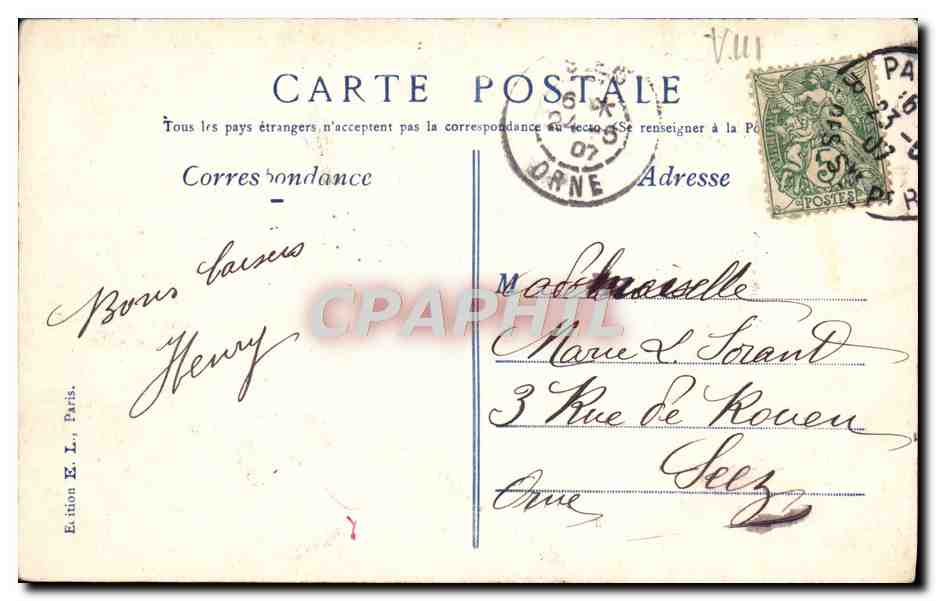 VIII
CARTE POSTALE
Tous les pays étrangers n'acceptent pas la correspondance au recto (Se renseigner à la Po
Correspondance
Adresse
6 *
24 - 8
07
ORNE
PA
16
23
07
PAR
5
POSTES
Bons baisers
Henry
Mademoiselle
Marie L. Sorant
3 Rue de Rouen
Seez
Orne
CPAPHIL
Edition E. L., Paris.